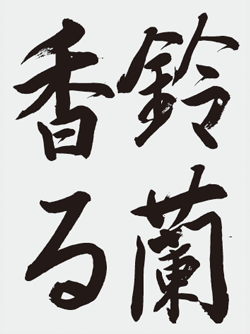 鈴蘭
香る